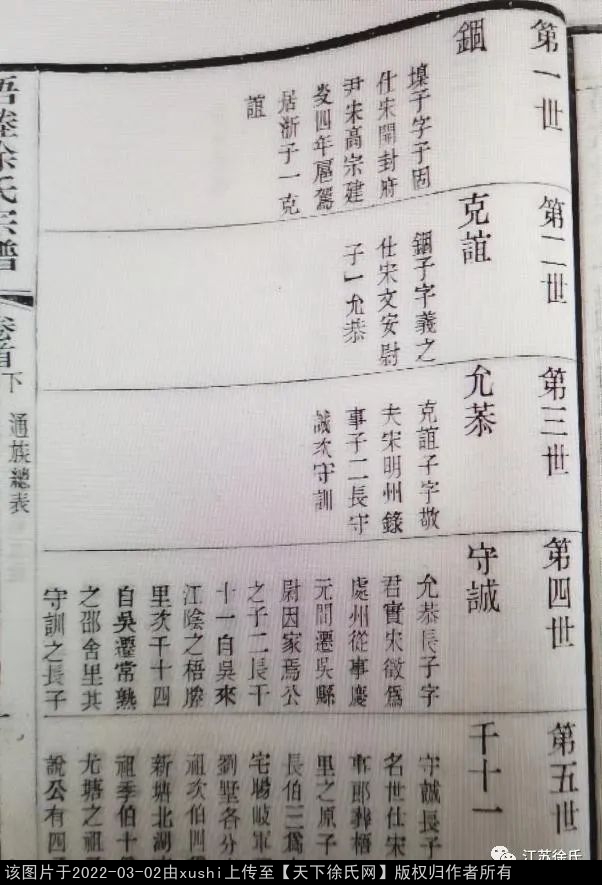 第一世
錮
墺子字子固
仕宋開封府
尹宋高宗建
炎四年扈駕
居浙子一克
誼
第二世
克誼
錮子字義之
仕宋文安尉
子一允恭
第三世
允恭
克誼子字敬
夫宋明州錄
事子二長守
誠次守訓
第四世
守誠
允恭長子字
君實宋徵爲
處州從事慶
元間遷吳縣
尉因家焉公
之子二長千
十一自吳來
江陰之梧塍
里次千十四
自吳遷常熟
之邵舍里其
守訓之長子
第五世
千十一
守誠長子
名世仕宋
事郎葬梧
里之原子
長伯三爲
宅場岐軍
劉墅各分
祖次伯四
新塘北湖
祖季伯十
尤塘之祖
說公有四
梧塍徐氏宗譜
卷首下
通族總表
江苏徐氏
该图片于2022-03-02由xushi上传至【天下徐氏网】版权归作者所有